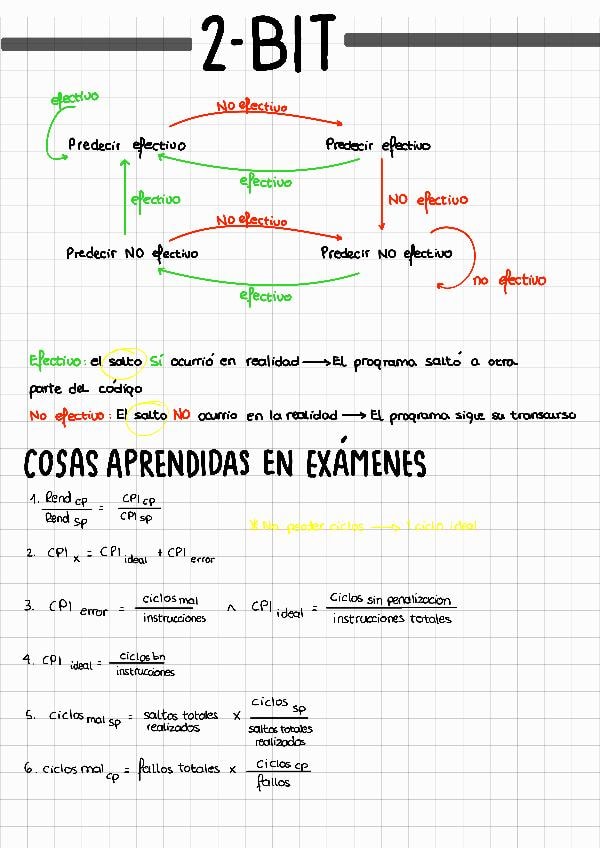 2-BIT
efectivo
NO efectivo
Predecir efectivo
Predecir efectivo
efectivo
efectivo
NO efectivo
NO efectivo
Predecir NO efectivo
Predecir NO efectivo
no efectivo
efectivo
Efectivo: el salto SÍ ocurrió en realidad → EL programa saltó a otra
parte del código
No efectivo: El salto NO ocurrio en la realidad → EL programa sigue su transcurso
COSAS APRENDIDAS EN EXÁMENES
1. Rend cp / Rend sp = CPI cp / CPI sp
* No perder ciclos → 1 ciclo ideal
2. CPI x = CPI ideal + CPI error
3. CPI error = ciclos mal / instrucciones ^ CPI ideal = Ciclos sin penalizacion / instrucciones totales
4. CPI ideal = ciclos bn / instrucciones
5. ciclos mal sp = saltos totales realizados x ciclos sp / saltos totales realizados
6. ciclos mal cp = fallos totales x ciclos cp / fallos